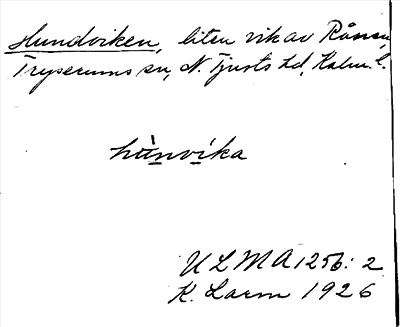 Hundviken, liten vik av Rånen,
Tryserums sn, N. Tjusts hd, Kalm. l.
hùnvíka
ULMA 1256: 2
K. Larm 1926